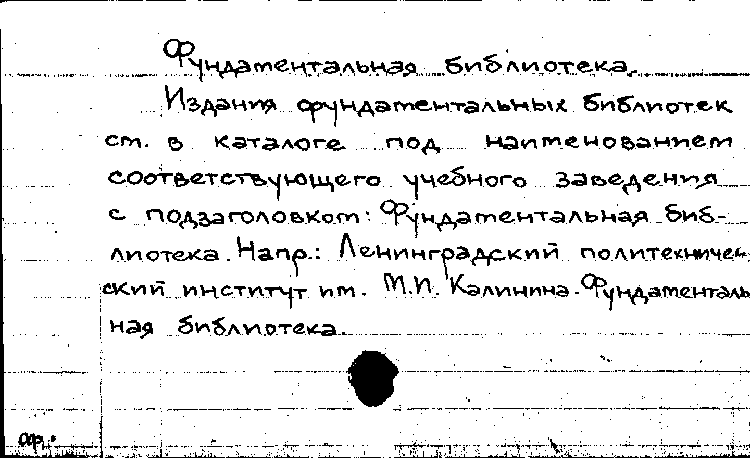 Фундаментальная библиотека.
Издания фундаментальных библиотек
см. в каталоге под наименованием
соответствующего учебного заведения
с подзаголовком: Фундаментальная биб-
лиотека. Напр.: Ленинградский политехничес-
ский институт им. М.И. Калинина. Фундаменталь
ная библиотека.